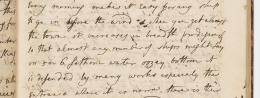 every morning makes it easy for any ship
to go in before the wind & when you get along
the town it increases in breadth prodigiously
so that almost any number of ships might lay
in our 6 fathom water oozey bottom it
is defended by many works especially the
entrance where it is narrow there is this